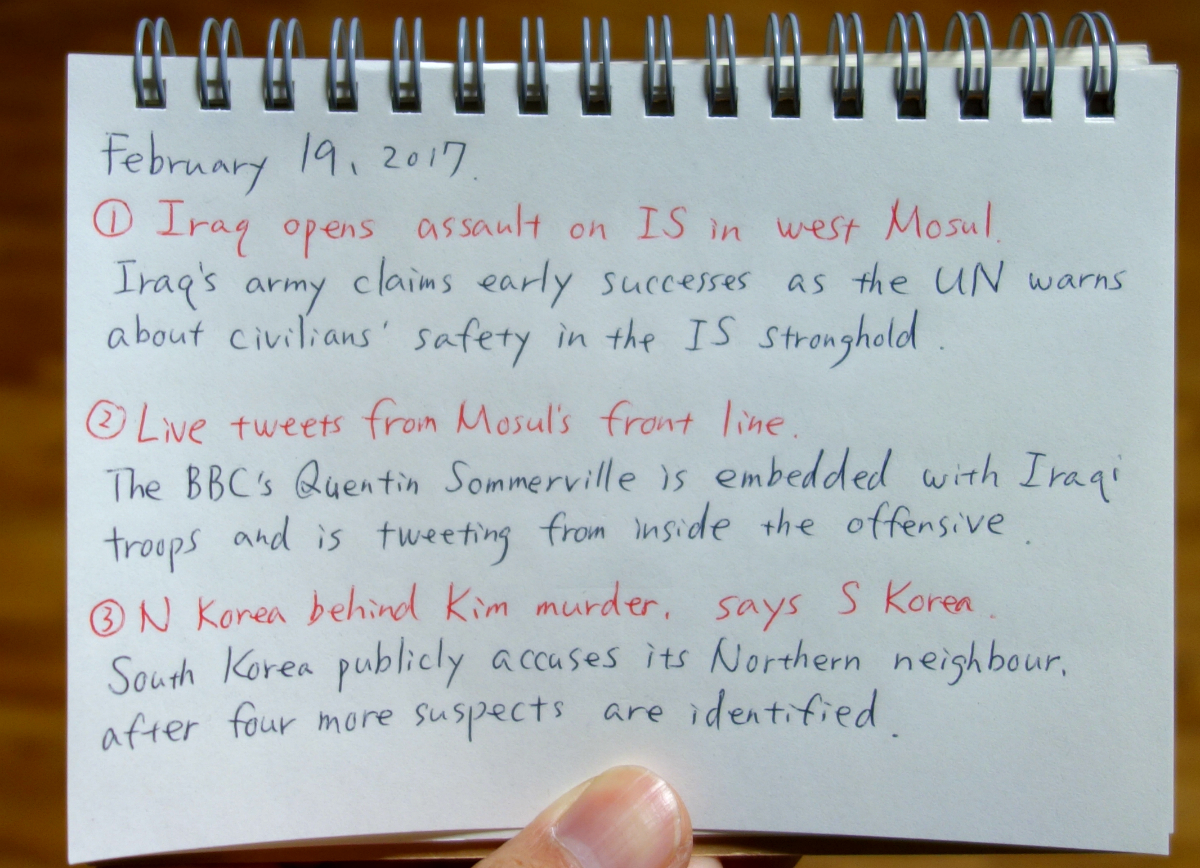 February 19, 2017.
① Iraq opens assault on IS in west Mosul.
Iraq's army claims early successes as the UN warns
about civilians' safety in the IS stronghold.
② Live tweets from Mosul's front line.
The BBC's Quentin Sommerville is embedded with Iraqi
troops and is tweeting from inside the offensive.
③ N Korea behind Kim murder, says S Korea.
South Korea publicly accuses its Northern neighbour,
after four more suspects are identified.